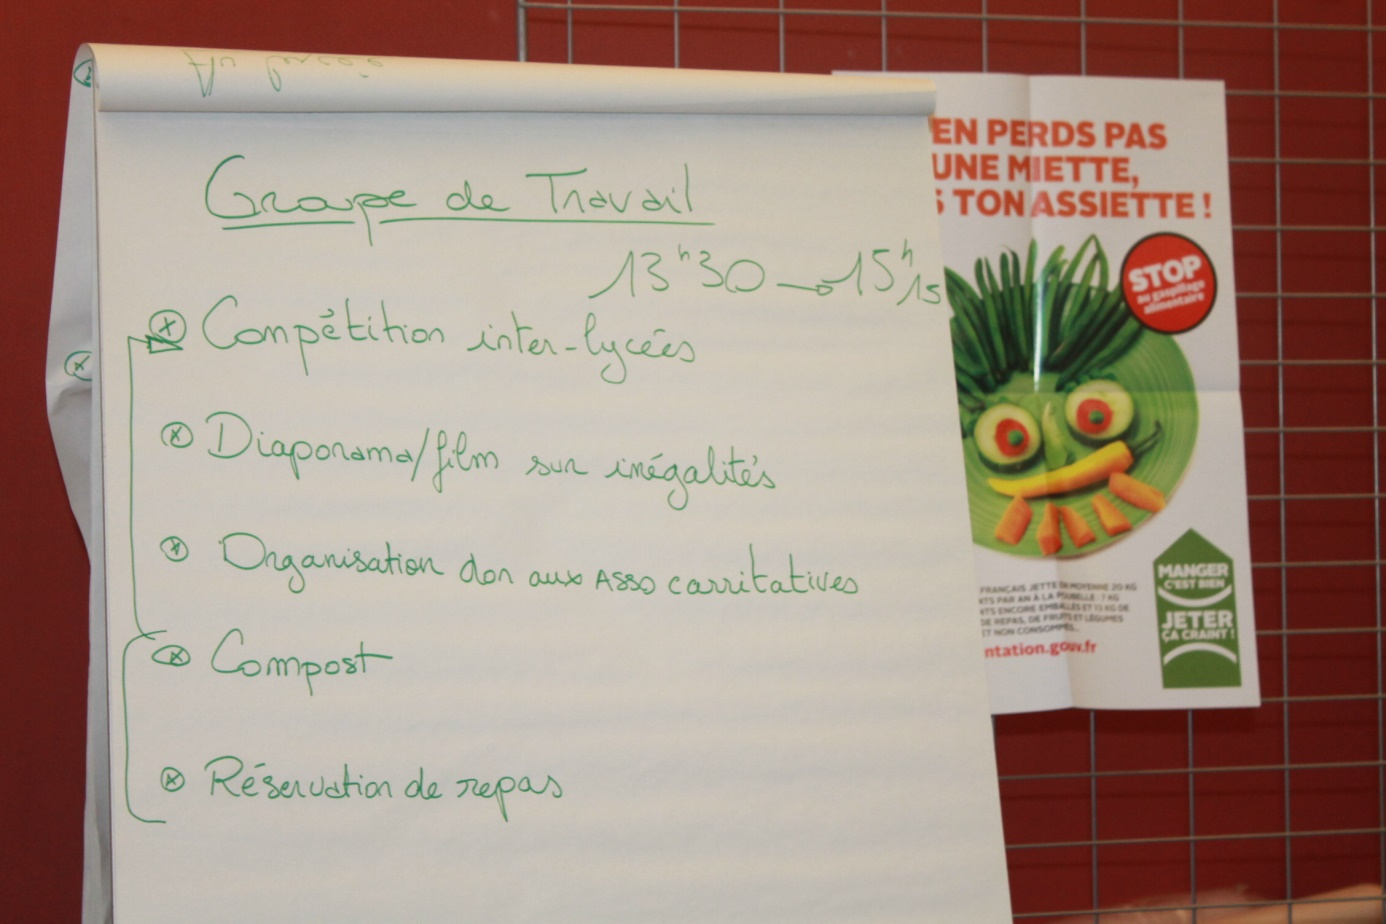 Groupe de Travail
13h30 → 15h15
Compétition inter-lycées
Diaporama/film sur inégalités
Organisation don aux Asso carritatives
Compost
Réservation de repas
EN PERDS PAS
UNE MIETTE,
S TON ASSIETTE !
STOP
au gaspillage
alimentaire
FRANÇAIS JETTE EN MOYENNE 20 KG
NTS PAR AN À LA POUBELLE : 7 KG
NTS ENCORE EMBALLÉS ET 13 KG DE
DE REPAS, DE FRUITS ET LÉGUMES
ET NON CONSOMMÉS...
ntation.gouv.fr
MANGER
C'EST BIEN,
JETER
ÇA CRAINT !